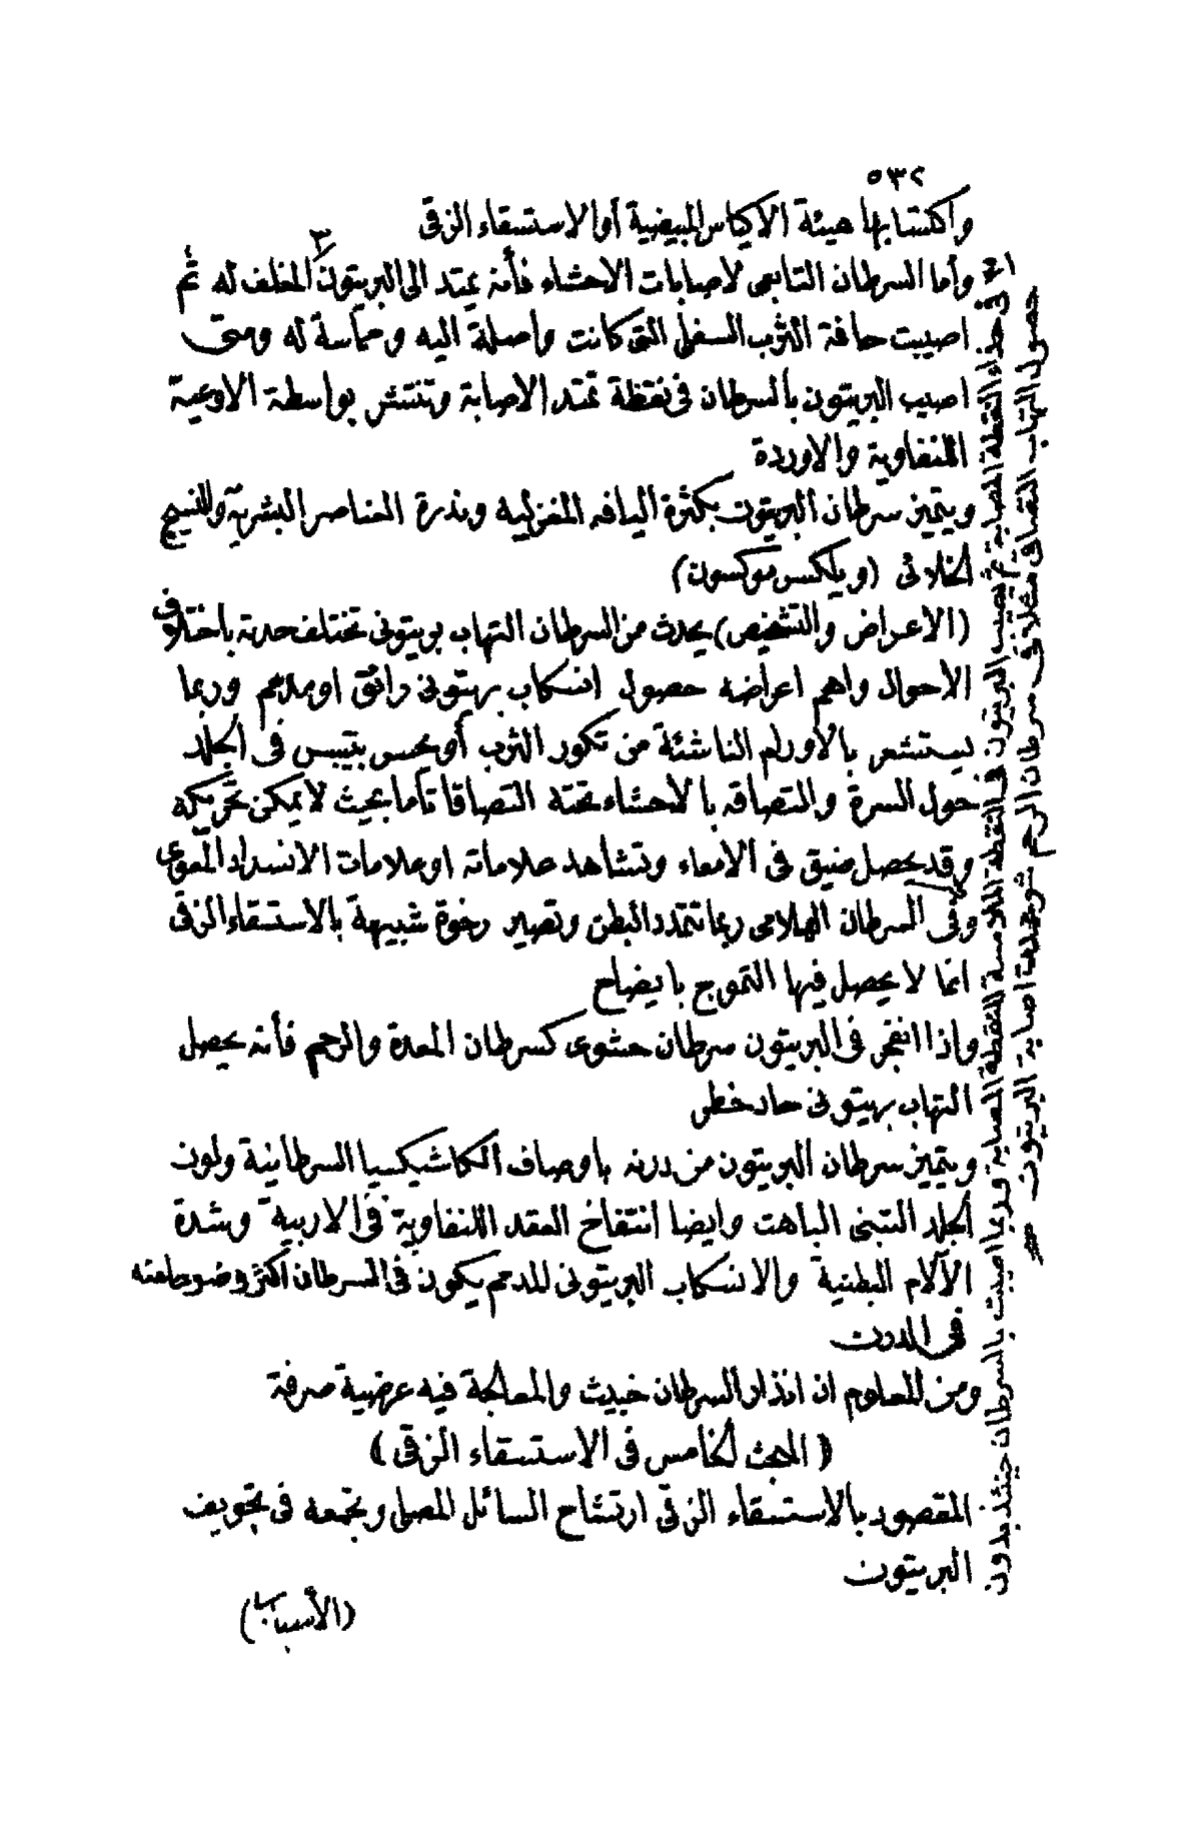 ٥٣٢
واكتسابها هيئة الاكياس المبيضية أو الاستسقاء الزقى
وأما السرطان التابعى لاصابات الاحشاء فأنه يمتد الى البريتون المغلف له ثم
اصيبت حافة الثرب السفلى التى كانت واصلة اليه ومماسة له ومتى
اصيب البريتون بالسرطان فى نقطة تمتد الاصابة وتنتشر بواسطة الاوعية
اللنفاوية والاوردة
ويتميز سرطان البريتون بكثرة اليافه المغزلية وندرة العناصر البشرية والنسيج
الخلائى (ويلكس موكسون)
(الاعراض والتشخيص) يحدث من السرطان التهاب بريتونى تختلف حدته باختلاف
الاحوال واهم اعراضه حصول انسكاب بريتونى رائق او مدمم وربما
يستشعر بالاورام الناشئة من تكور الثرب أو يحس بتيبس فى الجلد
حول السرة والتصاقه بالاحشاء تحته التصاقا تاما بحيث لا يمكن تحريكه
وقد يحصل ضيق فى الامعاء وتشاهد علاماته او علامات الانسداد المعوى
وفى السرطان الهلامى ربما تتمدد البطن وتصير رخوة شبيهة بالاستسقاء الزقى
انما لا يحصل فيها التموج بايضاح
واذا انفجر فى البريتون سرطان حشوى كسرطان المعدة والرحم فأنه يحصل
التهاب بريتونى حاد خطر
ويتميز سرطان البريتون من درنه باوصاف الكاشيكسيا السرطانية ولون
الجلد التبنى الباهت وايضا انتفاخ العقد اللنفاوية فى الاربية وشدة
الآلام البطنية والانسكاب البريتونى المدمم يكون فى السرطان اكثر وضوحا منه
فى الدرن
ومن المعلوم ان انذار السرطان خبيث والمعالجة فيه عرضية صرفة
(المبحث الخامس فى الاستسقاء الزقى)
المقصود بالاستسقاء الزقى ارتشاح السائل المصلى وتجمعه فى تجويف
البريتون
(الأسباب)
فى حذاء النقطة المصابة ثم يصيب البريتون فى النقطة الملامسة للنقطة المصابة وربما اصيبت بالسرطان حينئذ بدون
حصول التهاب التصاقى مثلا فى سرطان الرحم شوهدت اصابة البريتون